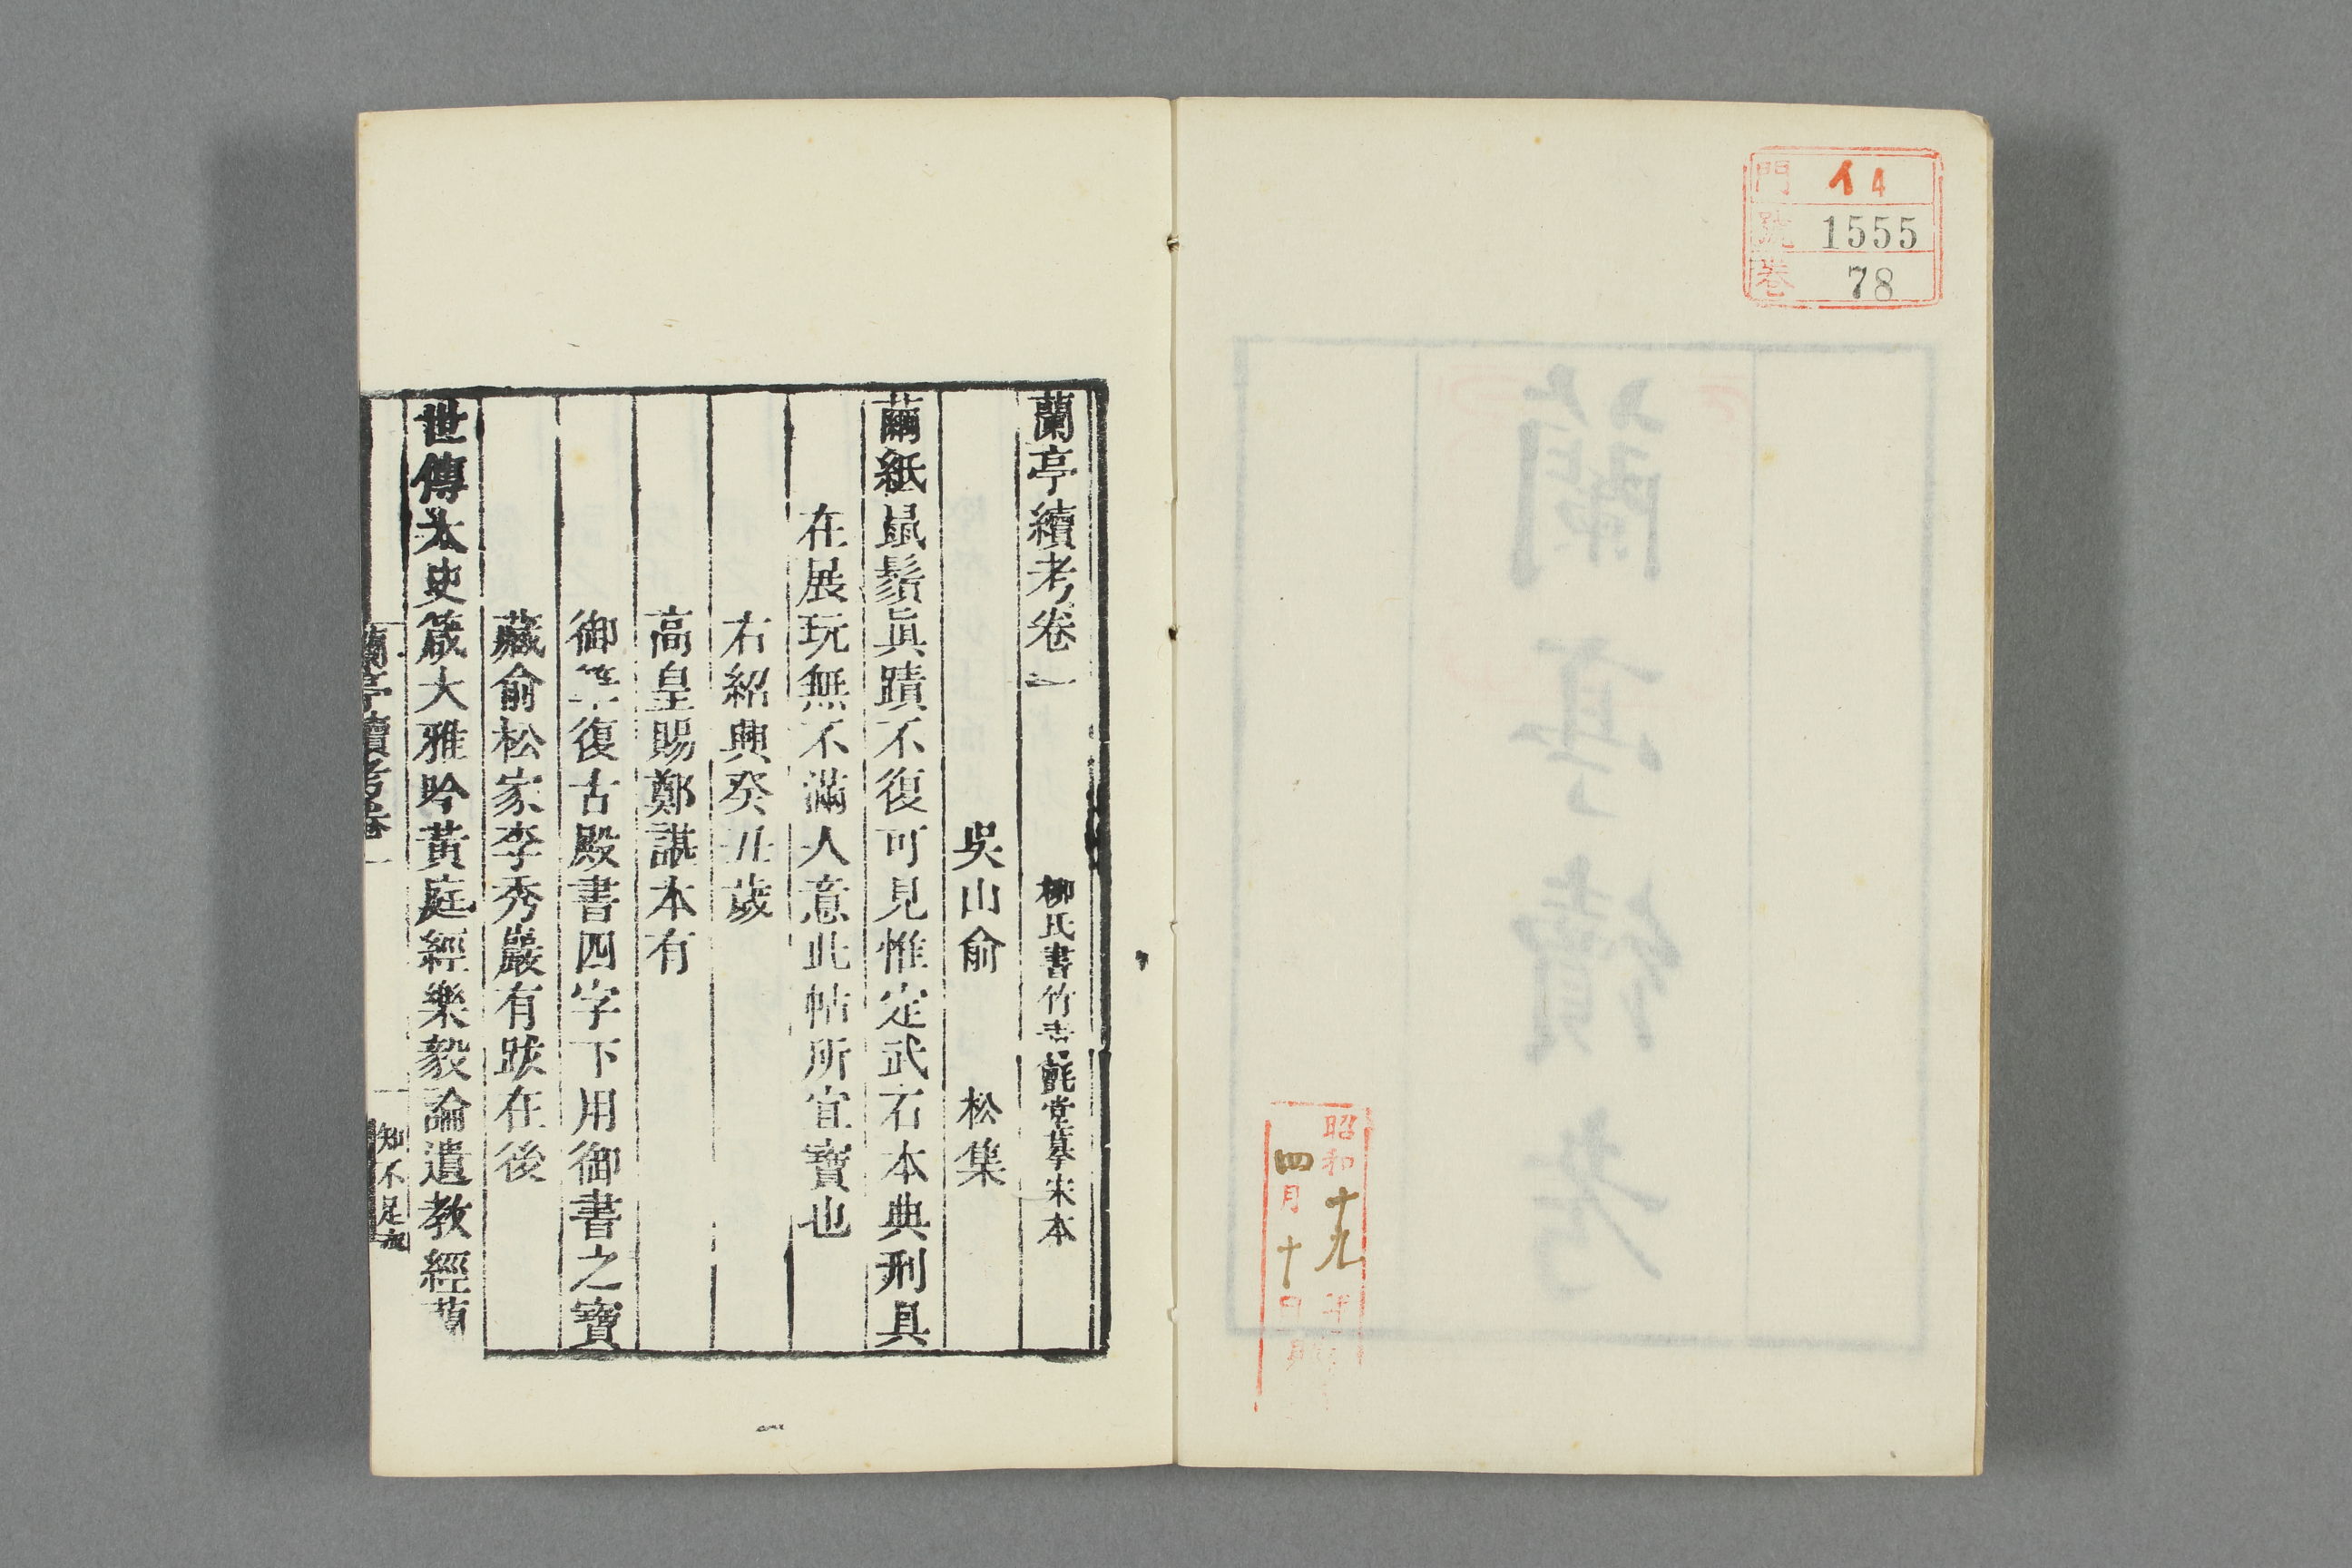 門 イ4
號 1555
卷 78
蘭亭續考
昭和十九年
四月十日
蘭亭續考卷一 柳氏書竹 氈堂摹宋本
吳山俞 松集
繭紙鼠鬚眞蹟不復可見惟定武石本典刑具
在展玩無不滿人意此帖所宜寶也
右紹興癸丑歲
高皇賜鄭諶本有
御筆復古殿書四字下用御書之寶
藏俞松家李秀巖有跋在後
世傳太史箴大雅吟黃庭經樂毅論遺教經蘭
蘭亭續考卷一
知不足齋